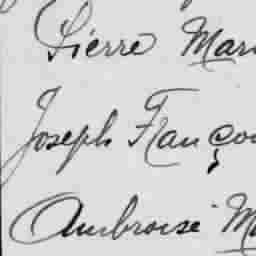 Pierre Mari
Joseph Françoi
Ambroise Ma